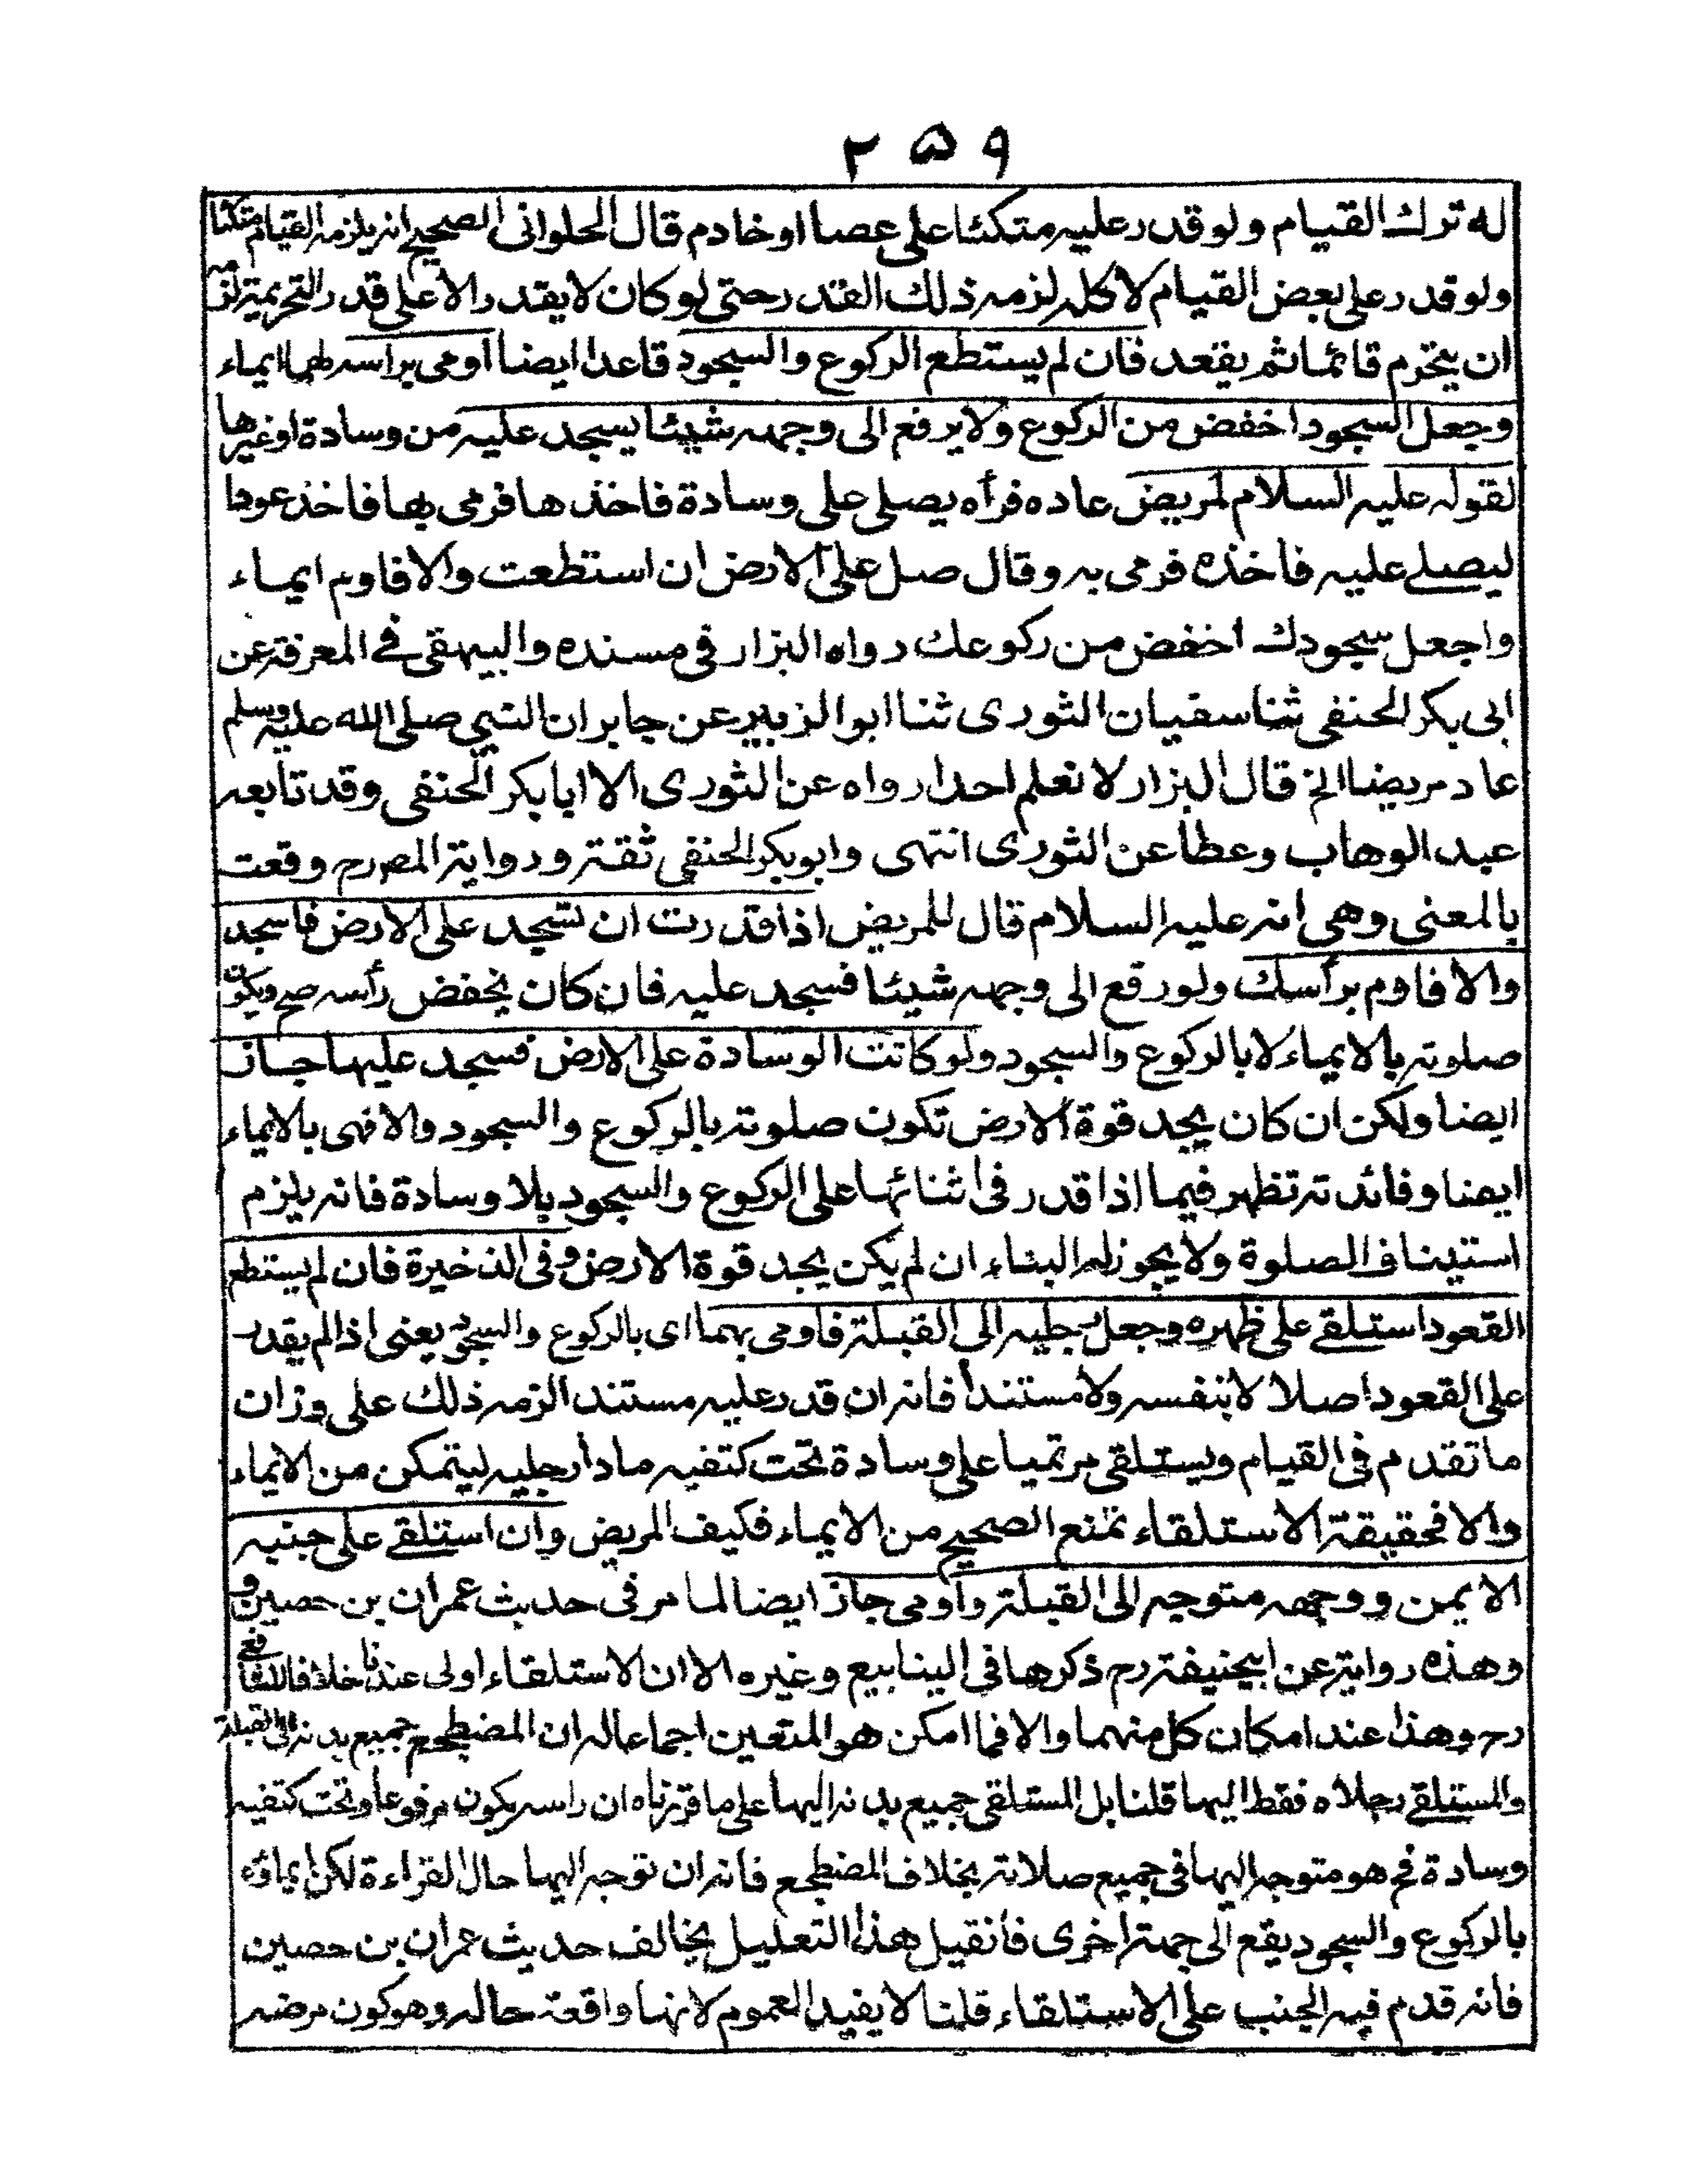 ۲۵۹
له ترك القيام ولو قدر عليه متكئا على عصا او خادم قال الحلوانى الصحيح انه يلزمه القيام متكئا
ولو قدر على بعض القيام لا كله لزمه ذلك القدر حتى لو كان لا يقدر الا على قدر التحريمة لزمه
ان يتحرم قائما ثم يقعد فان لم يستطع الركوع والسجود قاعدا ايضا اومى براسه لهما ايماء
وجعل السجود اخفض من الركوع ولا يرفع الى وجهه شيئا يسجد عليه من وسادة او غيرها
لقوله عليه السلام لمريض عاده فرأه يصلى على وسادة فاخذها فرمى بها فاخذ عودا
ليصلے عليه فاخذه فرمى به وقال صل على الارض ان استطعت والا فاوم ايماء
واجعل سجودك اخفض من ركوعك رواه البزار فى مسنده والبيهقى فے المعرفة عن
ابى بكر الحنفى ثنا سفيان الثورى ثنا ابو الزبير عن جابر ان النبى صلى الله عليه وسلم
عاد مريضا الخ قال البزار لا نعلم احدا رواه عن الثورى الا ابا بكر الحنفى وقد تابعه
عبد الوهاب وعطأ عن الثورى انتهى وابو بكر الحنفى ثقة ورواية المص رح وقعت
بالمعنى وهى انه عليه السلام قال للمريض اذا قدرت ان تسجد على الارض فاسجد
والا فاوم برأسك ولو رفع الى وجهه شيئا فسجد عليه فان كان يخفض رأسه صح ويكون
صلوته بالايماء لا بالركوع والسجود ولو كانت الوسادة على الارض فسجد عليها جاز
ايضا ولكن ان كان يجد قوة الارض تكون صلوته بالركوع والسجود والا فهى بالايماء
ايضا وفائدته تظهر فيما اذا قدر فى اثنائها على الركوع والسجود بلا وسادة فانه يلزم
استيناف الصلوة ولا يجوز له البناء ان لم يكن يجد قوة الارض وفى الذخيرة فان لم يستطع
القعود استلقے على ظهره وجعل رجليه الى القبلة فاومى بهما اى بالركوع والسجود يعنى اذا لم يقدر
على القعود اصلا لا بنفسه ولا مستندا فانه ان قدر عليه مستندا لزمه ذلك على وزان
ما تقدم فى القيام ويستلقى مرتميا على وسادة تحت كتفيه مادا رجليه ليتمكن من الايماء
والا فحقيقة الاستلقاء تمنع الصحيح من الايماء فكيف المريض وان استلقے على جنبه
الايمن ووجهه متوجه الى القبلة واومى جاز ايضا لما مر فى حديث عمران بن حصين و
وهذه رواية عن ابيحنيفة رح ذكرها فى الينابيع وغيره الا ان الاستلقاء اولى عندنا خلافا للشافعى
رح وهذا عند امكان كل منهما والا فما امكن هو المتعين اجماعا له ان المضطجع جميع بدنه الى القبلة
والمستلقے رجلاه فقط اليها قلنا بل المستلقى جميع بدنه اليها على ما قررناه ان راسه يكون مرفوعا وتحت كتفيه
وسادة فح هو متوجه اليها فى جميع صلاته بخلاف المضطجع فانه ان توجه اليها حال القراءة لكن ايماؤه
بالركوع والسجود يقع الى جهة اخرى فان قيل هذا التعليل يخالف حديث عمران بن حصين
فانه قدم فيه الجنب على الاستلقاء قلنا لا يفيد العموم لانها واقعة حاله وهو كون مرضه